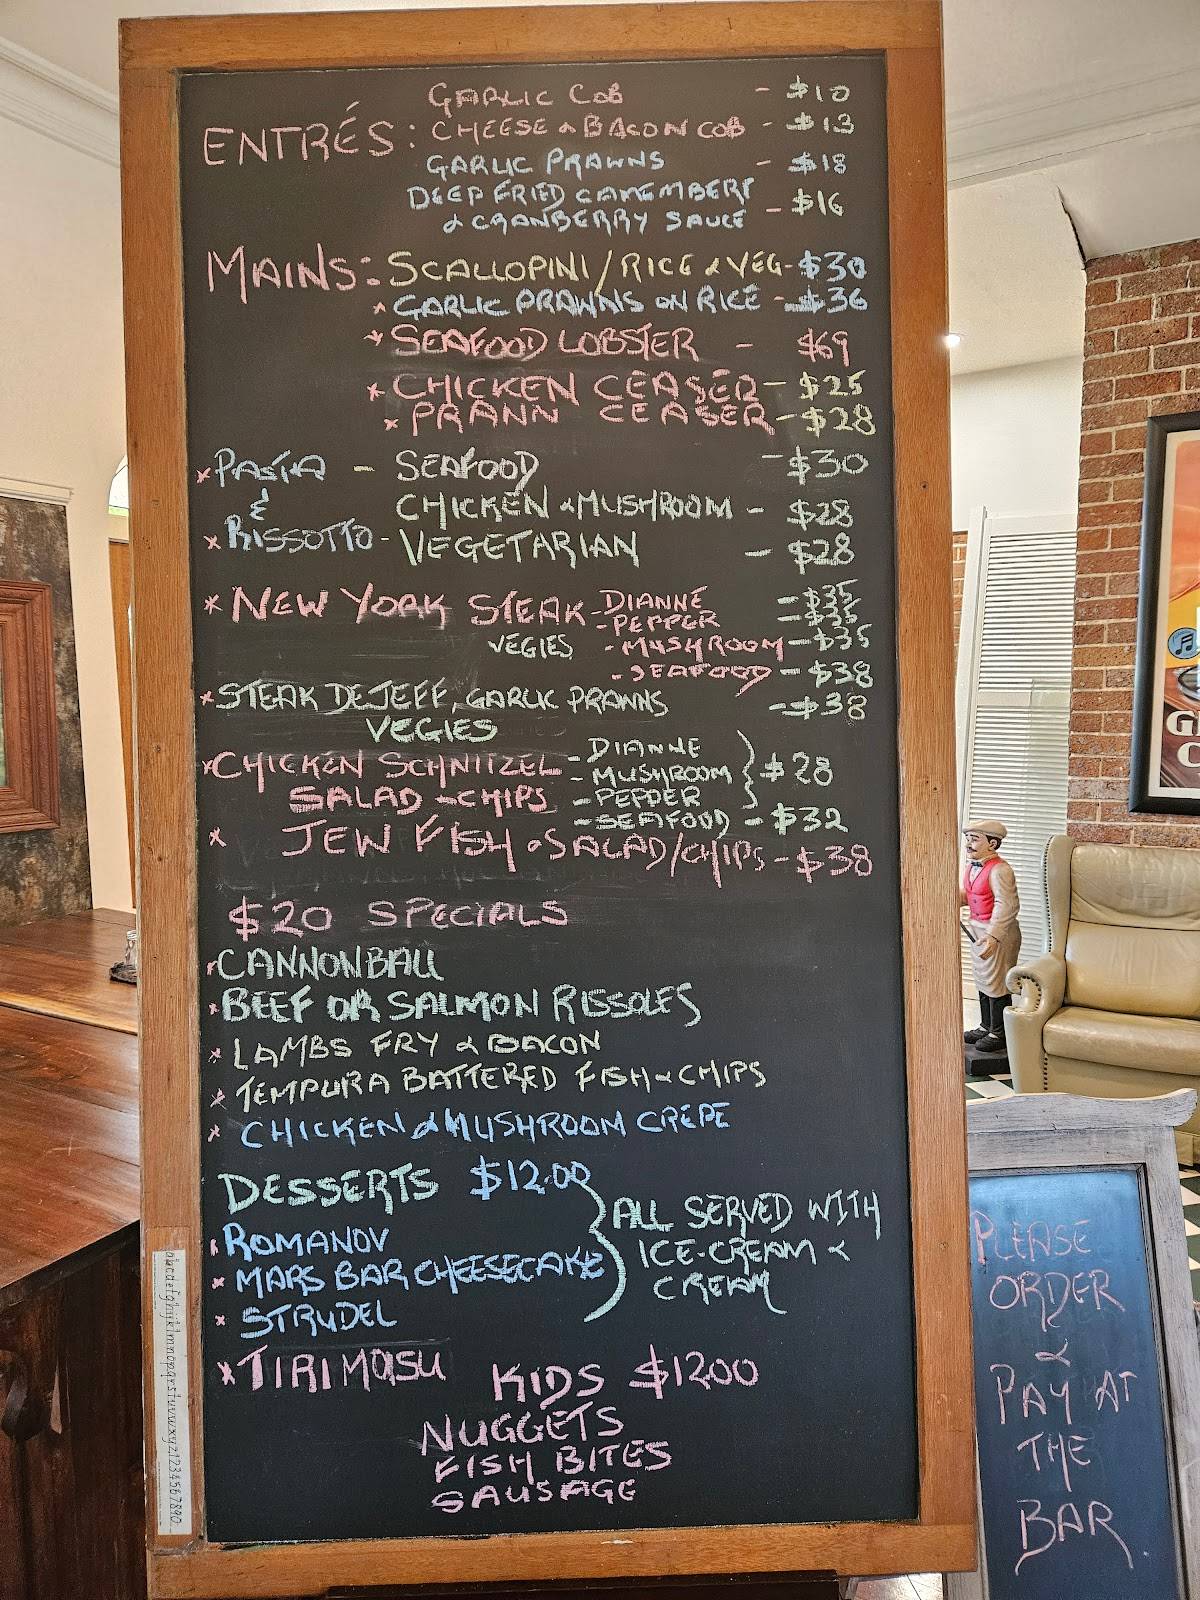 GARLIC COB - $10
ENTRÉS: CHEESE & BACON COB - $13
GARLIC PRAWNS - $18
DEEP FRIED CAMEMBERT
& CRANBERRY SAUCE - $16
MAINS: SCALLOPINI/RICE & VEG - $30
* GARLIC PRAWNS ON RICE - $36
* SEAFOOD LOBSTER - $69
* CHICKEN CEASER - $25
* PRANN CEASER - $28
* PASTA - SEAFOOD - $30
& CHICKEN & MUSHROOM - $28
* RISSOTTO - VEGETARIAN - $28
* NEW YORK STEAK - DIANNE - $35
- PEPPER - $35
VEGIES - MUSHROOM - $35
- SEAFOOD - $38
* STEAK DEJEFF, GARLIC PRAWNS - $38
VEGIES
* CHICKEN SCHNITZEL - DIANNE
- MUSHROOM } $28
SALAD - CHIPS - PEPPER
- SEAFOOD - $32
* JEW FISH & SALAD/CHIPS - $38
$20 SPECIALS
* CANNONBALL
* BEEF OR SALMON RISSOLES
* LAMBS FRY & BACON
* TEMPURA BATTERED FISH & CHIPS
* CHICKEN & MUSHROOM CREPE
DESSERTS $12.00
ALL SERVED WITH
ICE-CREAM &
CREAM
* ROMANOV
* MARS BAR CHEESECAKE
* STRUDEL
* TIRIMASU
KIDS $1200
NUGGETS
FISH BITES
SAUSAGE
abcdefghijklmnopqrstuvwxyz1234567890
PLEASE
ORDER
&
PAY AT
THE
BAR